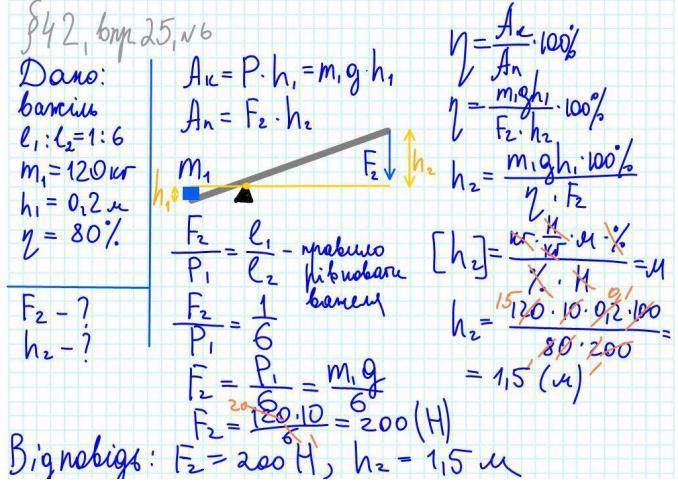 §42, впр 25, №6
Дано:
важіль
l₁:l₂=1:6
m₁=120кг
h₁=0,2м
η=80%
F₂-?
h₂-?
Aк=P·h₁=m₁g·h₁
Aп=F₂·h₂
m₁
h₁
F₂
h₂
F₂/P₁=l₁/l₂ - правило рівноваги важеля
F₂/P₁=1/6
F₂=P₁/6=m₁g/6
F₂=120·10/6=200(Н)
η=Aк/Aп·100%
η=m₁gh₁/F₂·h₂·100%
h₂=m₁gh₁·100%/η·F₂
[h₂]=кг·Н/кг·м·%/%·Н=м
h₂=120·10·0,2·100/80·200=
=1,5(м)
Відповідь: F₂=200Н, h₂=1,5м